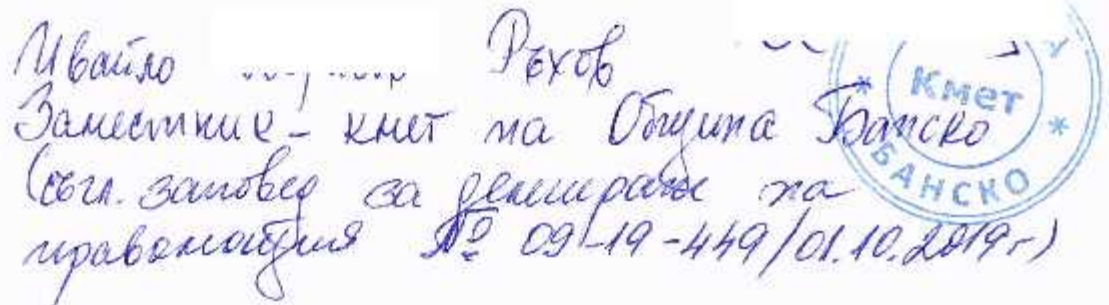 Ивайло Ръхов
Заместник - кмет на Община Банско
(съгл. заповед за делегиране на
правомощия № 09-19-449/01.10.2019г)
Кмет
БАНСКО